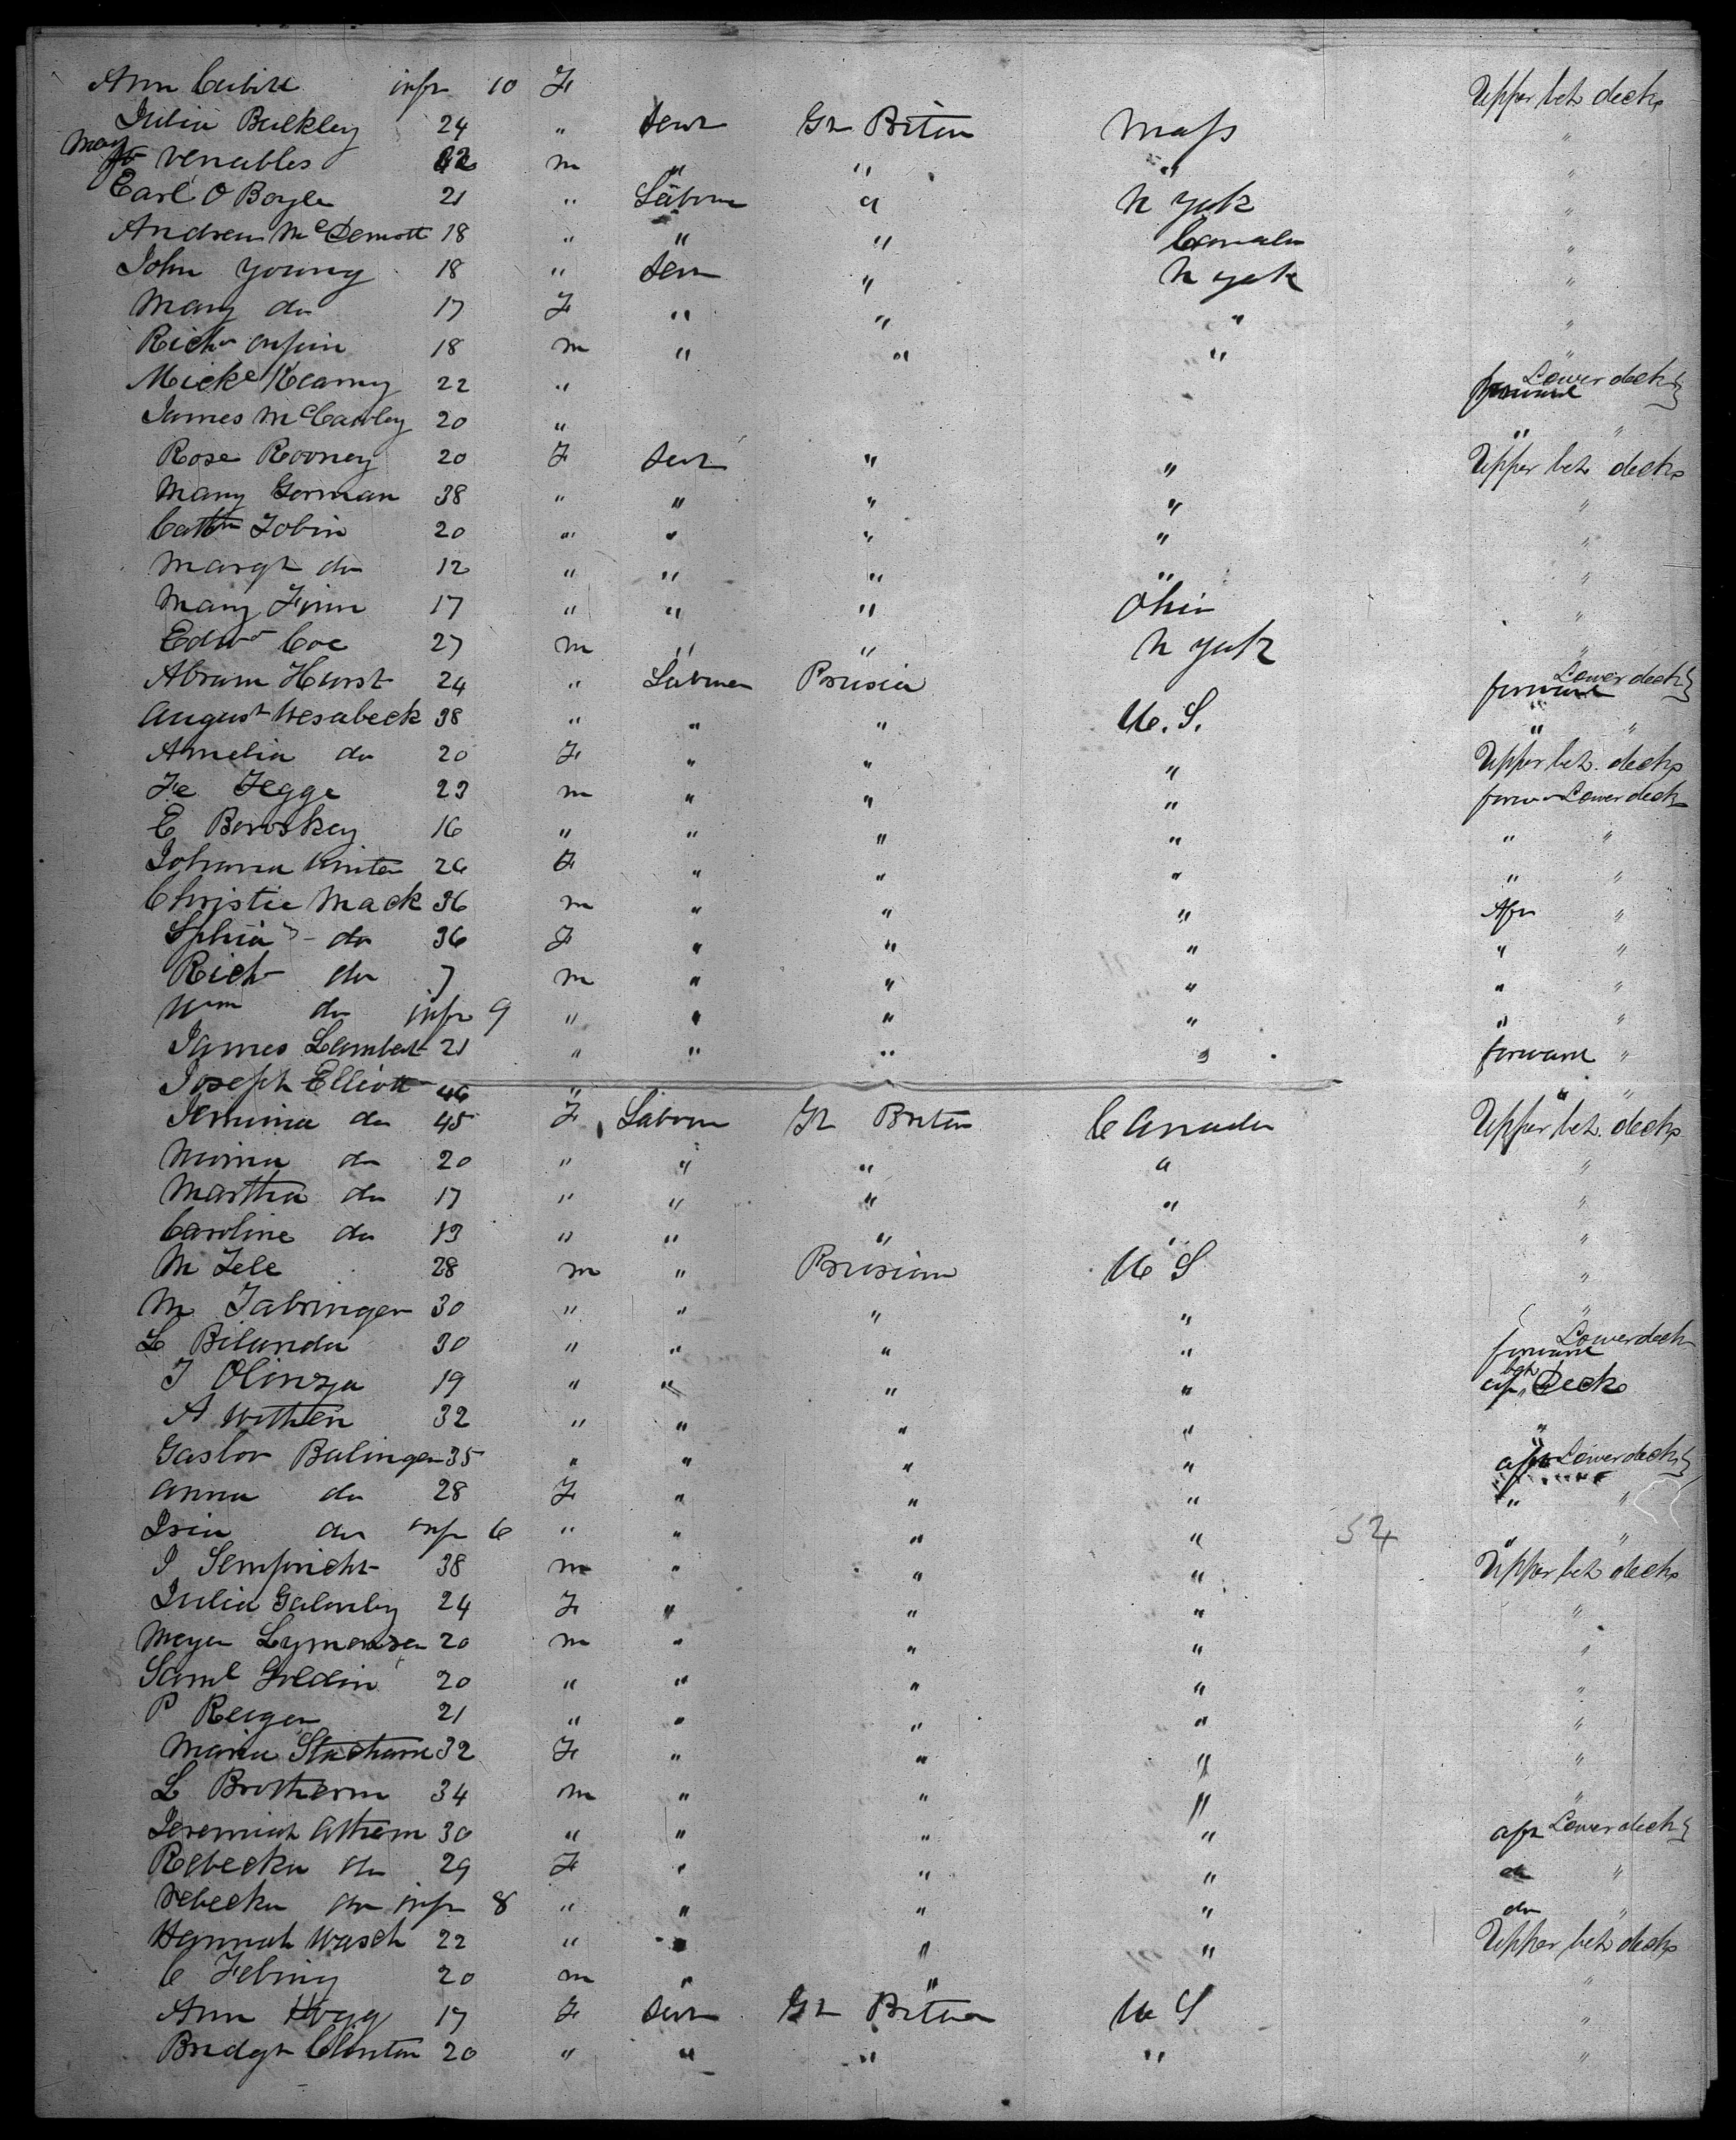 Ann infr 10 F Upper bet decks
Julia Bulkley 24 " Servt Gt Britn Mass "
May Jo Venables 22 m " " " "
Earl O Boyle 21 " Labour " N York "
Andrew McDemott 18 " " " Canada "
John Young 18 " Serv " N York "
Mary do 17 F " " " "
Richd 18 m " " " "
Miche Kearny 22 " forward Lower deck }
James McCawley 20 " " "
Rose Rooney 20 F Servt " " Upper bet decks
Mary Gorman 38 " " " " "
Cathn Tobin 20 " " " " "
Margt do 12 " " " " "
Mary Finn 17 " " " Ohio "
Edwd Coe 27 m " " N York "
Abram Hurst 24 " Labourer Prusia forward Lower deck }
August Wesabeck 38 " " " U.S. " "
Amelia do 20 F " " " Upper bet. decks
Fe Fegge 23 m " " " forw Lower deck
E Boroskey 16 " " " " " "
Johanna 26 F " " " " "
Christie Mack 36 m " " " Aft "
Sphia do 36 F " " " " "
Richd do 7 m " " " " "
Wm do infr 9 " " " " " "
James Lambert 21 " " " " forward "
Joseph Elliott 46 " " "
Jemima do 45 F Labour Gt Briten Canada Upper bet. decks
do 20 " " " " "
Martha do 17 " " " " "
Caroline do 13 " " " " "
M Tele 28 m " Prusian U S "
M Tabringer 30 " " " " "
L Bilanda 30 " " " " forward Lower deck
J Olinzja 19 " " " " aft bet Decks
A Withen 32 " " " " "
Gaslov Balinger 35 " " " " aft Lower deck }
Anna do 28 F " " " " "
do infr 6 " " " " 54 " "
J 38 m " " " Upper bet decks
Julia Galmby 24 F " " " "
Meyer 20 m " " " "
Saml Goldin 20 " " " " "
P Reiger 21 " " " " "
Maria 32 F " " " "
L Brotherm 34 m " " " "
Jeremiah Athern 30 " " " " aft Lower deck }
Rebecka do 29 F " " " do "
Rebecka do infr 8 " " " " do "
Hannah Wasch 22 " " " " Upper bet decks
C Febiny 20 m " " "
Ann Hogg 17 F Servt Gt Britn U S "
Bridgt Clinton 20 " " " " "